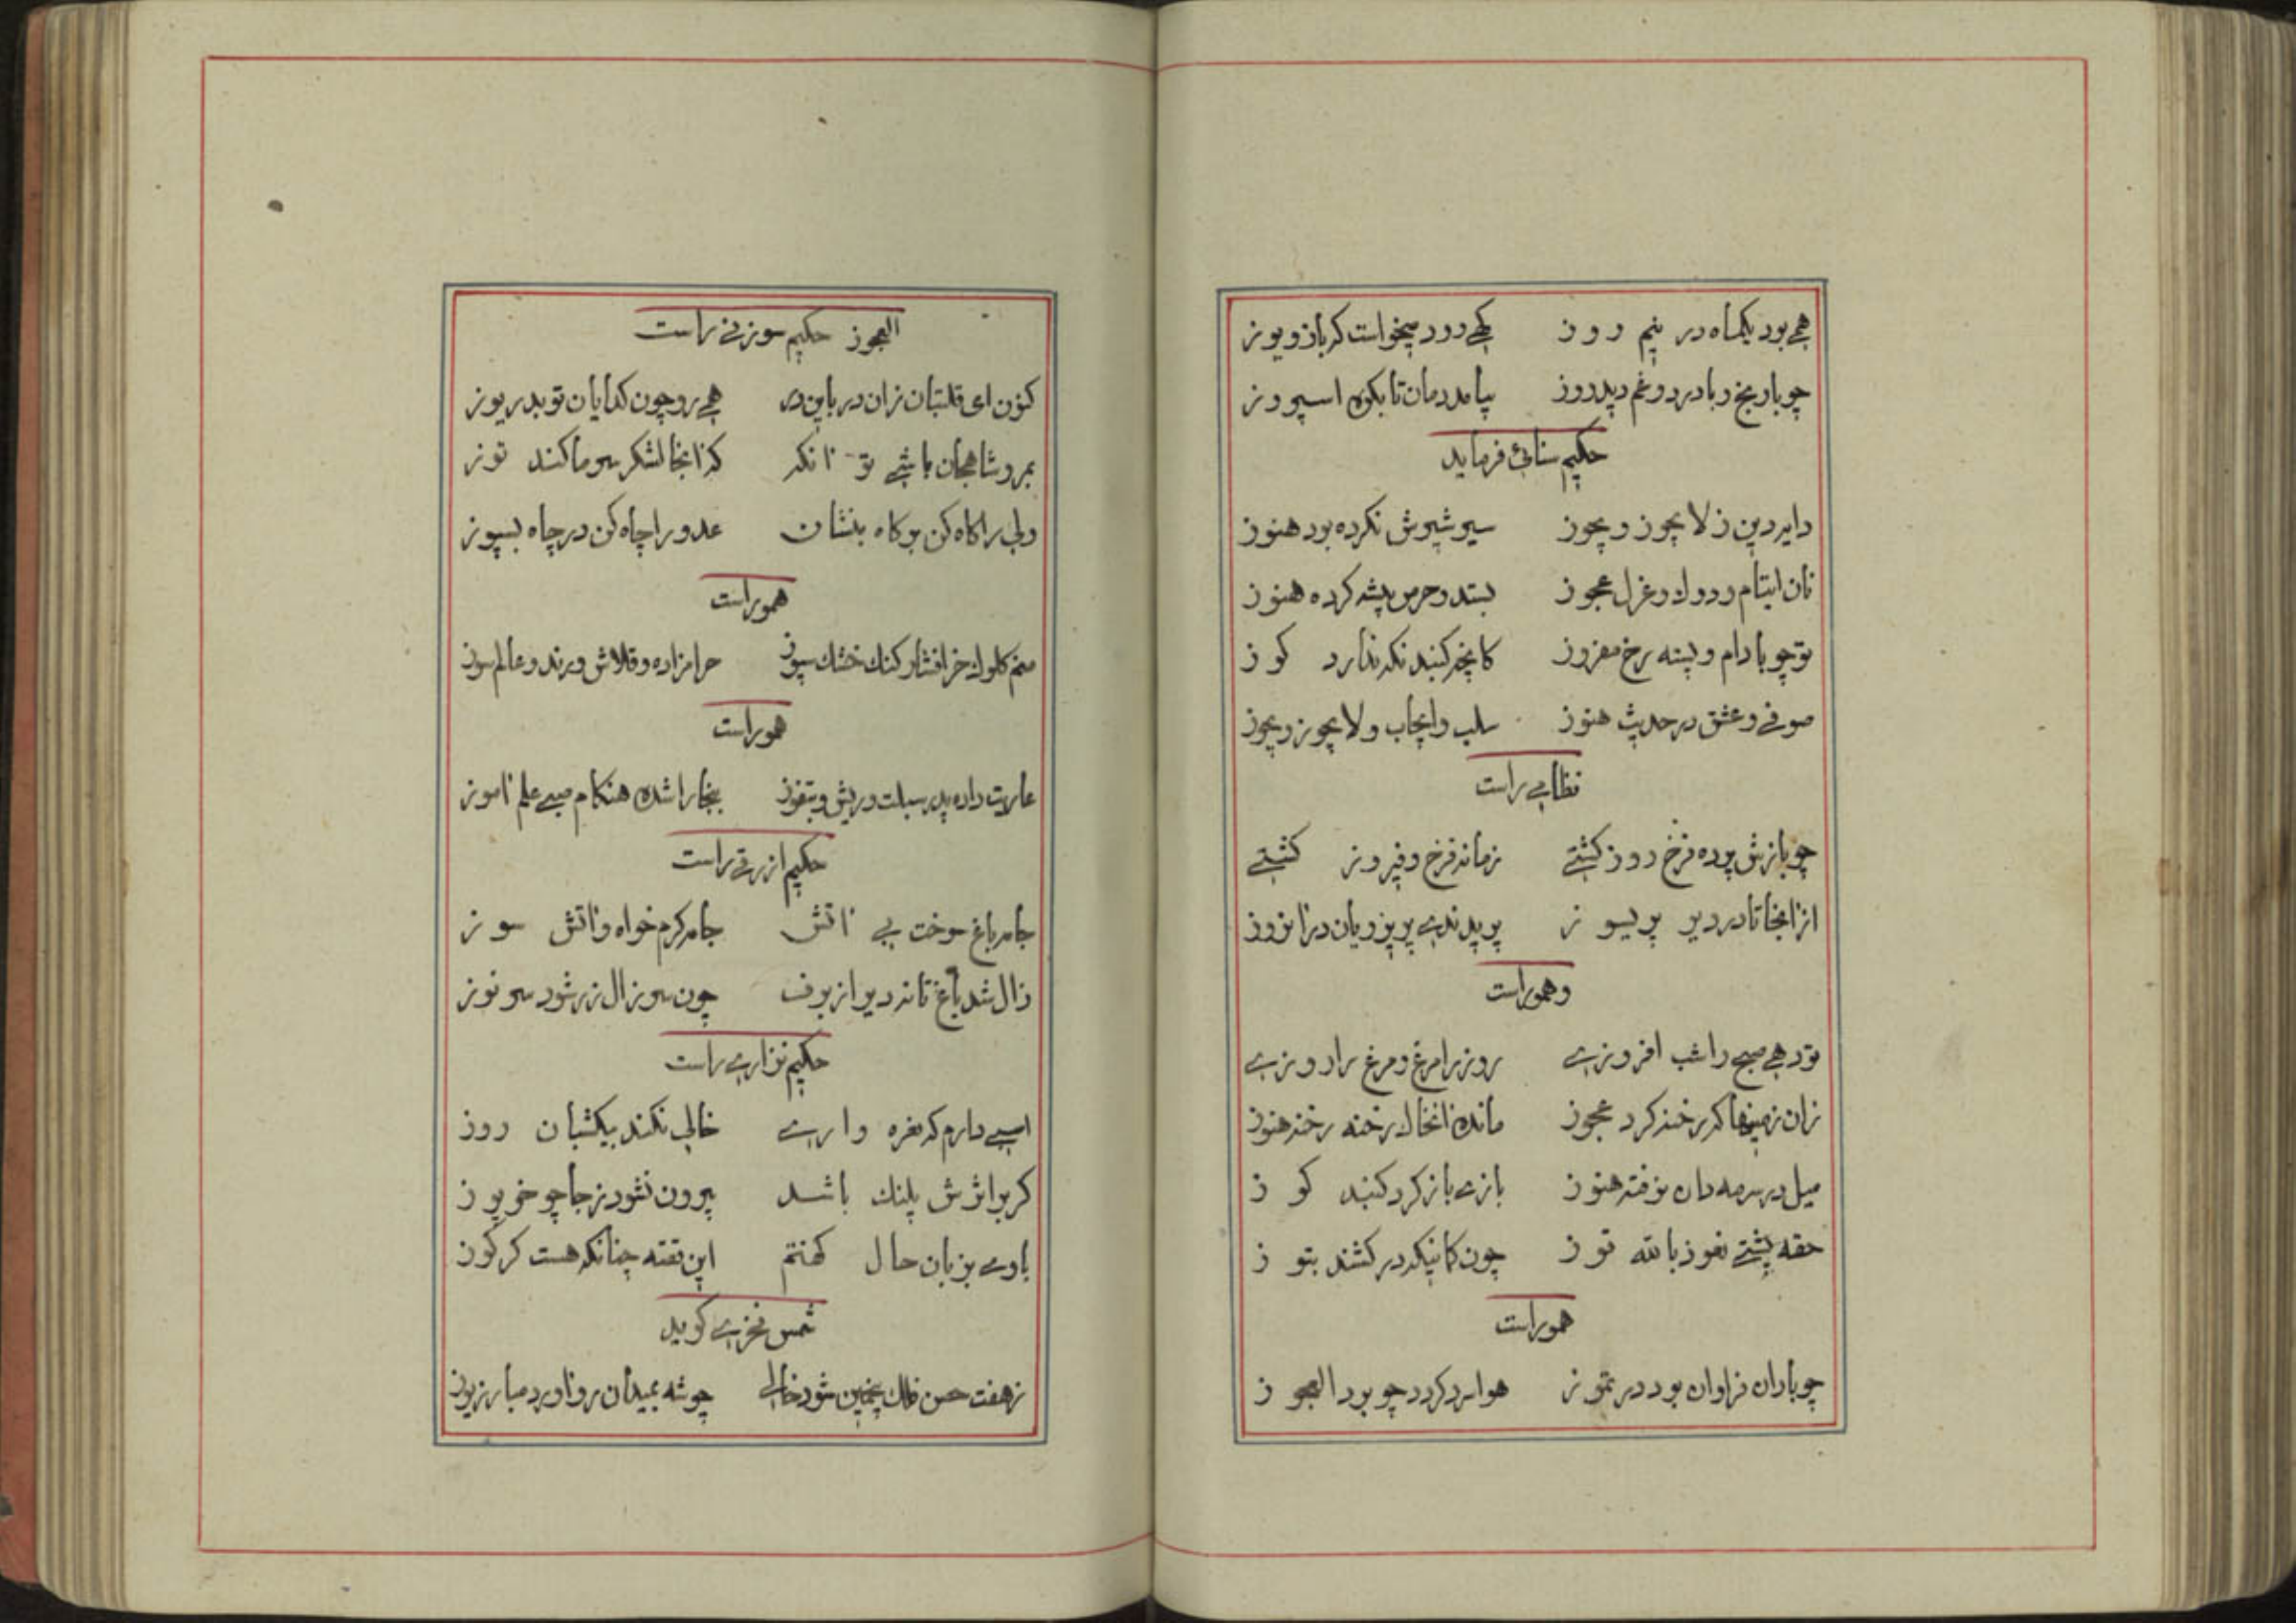 همی بود یکماه در نیم روز کهی رود میخواست کرباز و یوز
چو با ورنج و با درد و غم دید روز بیامد دمان تا بکوه اسپروز
حکیم سنائی فرماید
دایر دین ز لا یجوز و یجوز سیر شیرش نکرده بود هنوز
نان ایتام و دوك و غزل عجوز بستد و حرص پیشه کرده هنوز
تو چو بادام و پسته رخ مفروز کانچه کنبد نکه ندارد کوز
صوفی و عشق در حدیث هنوز سلب و ایجاب و لا یجوز و یجوز
نظامی راست
چو بازش پوده فرخ روز کشتی زمانه فرخ و فیروز کشتی
از انجا تا در دیر پریسوز پریدند پریرویان در انروز
و هم وراست
تو دهی صبح را شب افروزی روز را مرغ و مرغ را روزی
زان زمینها که رخنه کرد عجوز مانده انخال رخنه رخنه هنوز
میل در سرمه دان نرفته هنوز بازی باز کرد کنبد کوز
حقه پشتی نعوذ بالله توز چون کانیکه در کشند بتوز
هم وراست
چو باران فراوان بود در تموز هوا سرد کردد چو برد العجوز
العجوز حکیم سوزنی راست
کنون ای قلتبان زان در باین در همی رو چون کدایان تو بدریوز
بمرو شاهجان باشی تو انکه که زانجا لشکر سرما کند توز
ولی را کاه کن بر کاه بنشان عدو را چاه کن در چاه بسپوز
هم وراست
منم کلوك خرافشار کنك خشك سپوز حرامزاده و قلاش و رند و عالم سوز
هم وراست
عاریت داده پدر سبلت و ریش و بتفوز ببخارا شده هنکام صبی علم اموز
حکیم ازرقی راست
جامه باغ سوخت بی اتش جامه کرم خواه و اتش سوز
زال شد باغ تا نه دیر از برف چون سر زال زر شود سر نوز
حکیم نزاری راست
اسبی دارم که نعره واری خالی نکند بیکشبان روز
کر بر اثرش پلنك باشد بیرون نشود ز جا چو خر پوز
باوی بزبان حال کفتم این نقته چنانکه هست کرکوز
شمس فخری کوید
ز هفت حصن فلك پنجمین شود خالی چو شه بمیدان رو اورد مبارز یوز